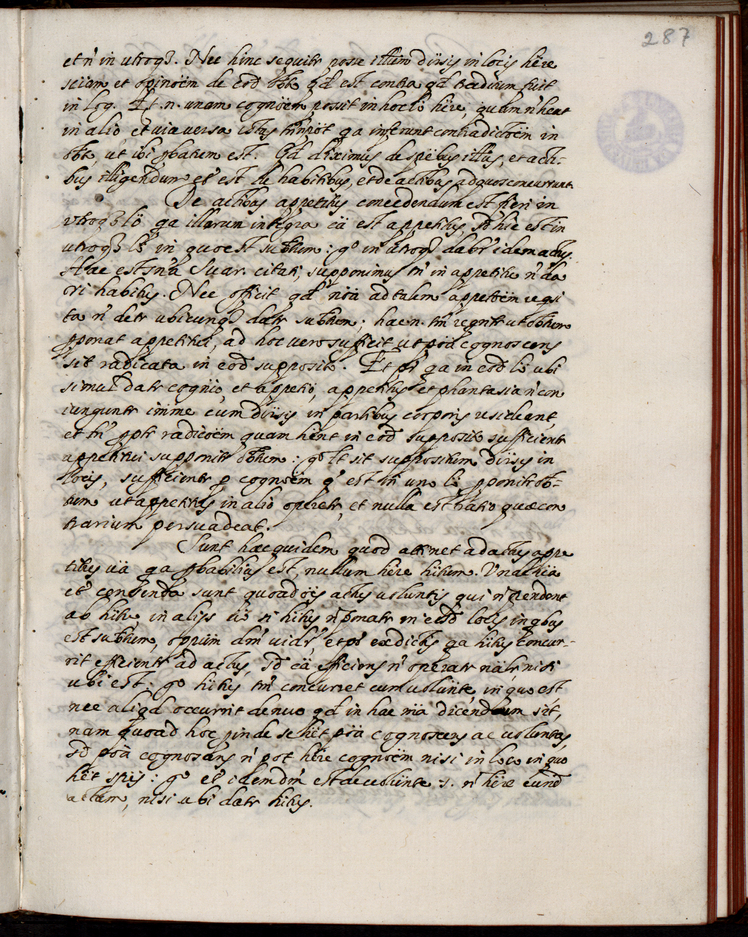 287
et n̄ in utroq3. Nec hinc sequitr posse illum diīsis in locis hēre
sciām et opinoēm de eod obto qd est contra qd traditum fuit
in Log. Et .n. unam cognoēm possit in hoc lō hēre, quam n̄ hēnt
in alio et via versa ga inferunt contradictoēm in
obto, ut ibi pbatum est: Qd diximus de spēbus illius, et acti-
bus eligendum et est de habitibus, et de actibus ad quos concurrunt.
De actibus appetitus concedendum est fieri in
utroq3 lō ga illarum integra cā est appetitus, sd hic est in
utroq3 lō in quo est subtum: go in utroq3 dabr idem actus.
Hac est snā Suar. citati, supponimus tn̄ in appetitu n̄ da
ri habitus. Nec officit qd noā ad talem appetitoēm reqsi
ta n̄ detr ubicunq3 datr subtum; haec .n. tm̄ reqritr ut obtum
ponat appetitui, ad hoc vero sufficit ut poā cognoscens
sit radicata in eod supposito. Et pr ga in eod lō ubi
simul datr cognio, et appetio, appetitus et phantasia n̄ con
iunguntr imme cum diīsis in partibus corporis resideant,
et tn̄ pptr radicoēm quam hēnt in eod supposito sufficientr
appetitui supponitr obtum: go lt sit suppositum diīsis in
locis, sufficientr p cognoēm q est in uno lō pponit ob-
tum ut appetitus in alio opēetr, et nulla est ratio quae con
trarium persuadeat.
Sunt haec quidem quod attinet ad actus appe
titus via ga pbabilius est, nullum hēre hitum. Una hia
et censenda sunt quoad oēs actus voluntis qui n̄ pendent
ab hitu in aliis si hitus n̄ ponatr in eisd locis in qbus
est subtum, oppm dm̄ vidr, et pr ex dictis ga hitus concur-
rit efficientr ad actus, sd cā efficiens n̄ operatr nālr nisi
ubi est: go hitus tm̄ concurret cum volunte, in quo est
nec aliqd occurrit denuo qd in hac mā dicendum sit,
nam quoad hoc pinde se hēt poā cognoscens ac voluntas,
sd poā cognoscens n̄ pot hēre cognoēm nisi in loco in quo
hēt spēs: go et idem dm̄ est de volunte .s. n̄ hēre eund
actum, nisi ubi datr hitus.